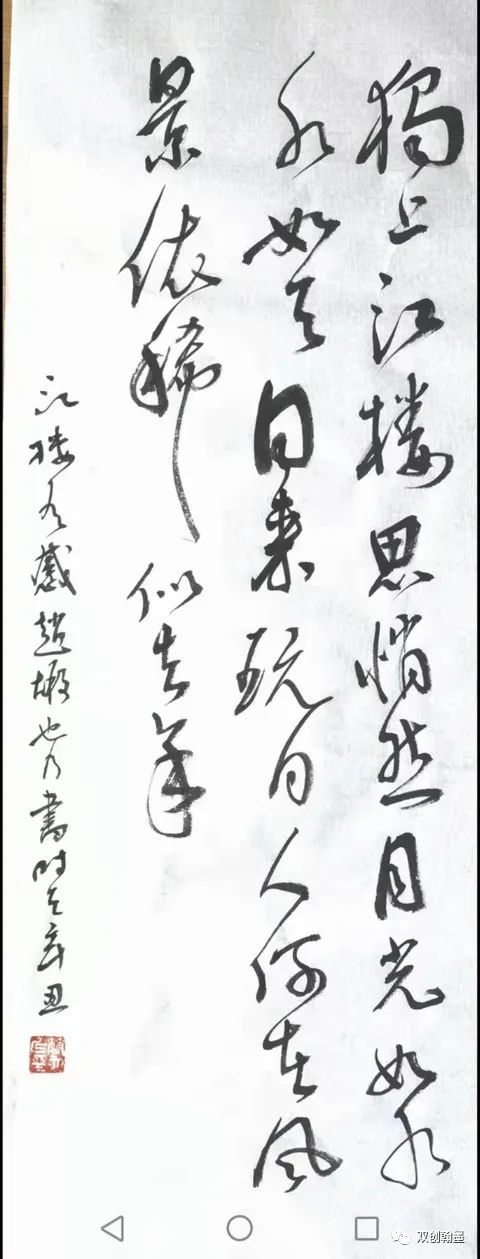 獨上江楼思悄然月光如水
水如天同来玩月人何在风
景依稀似去年
江楼有感趙嘏也乃書时辛丑
双创翰墨